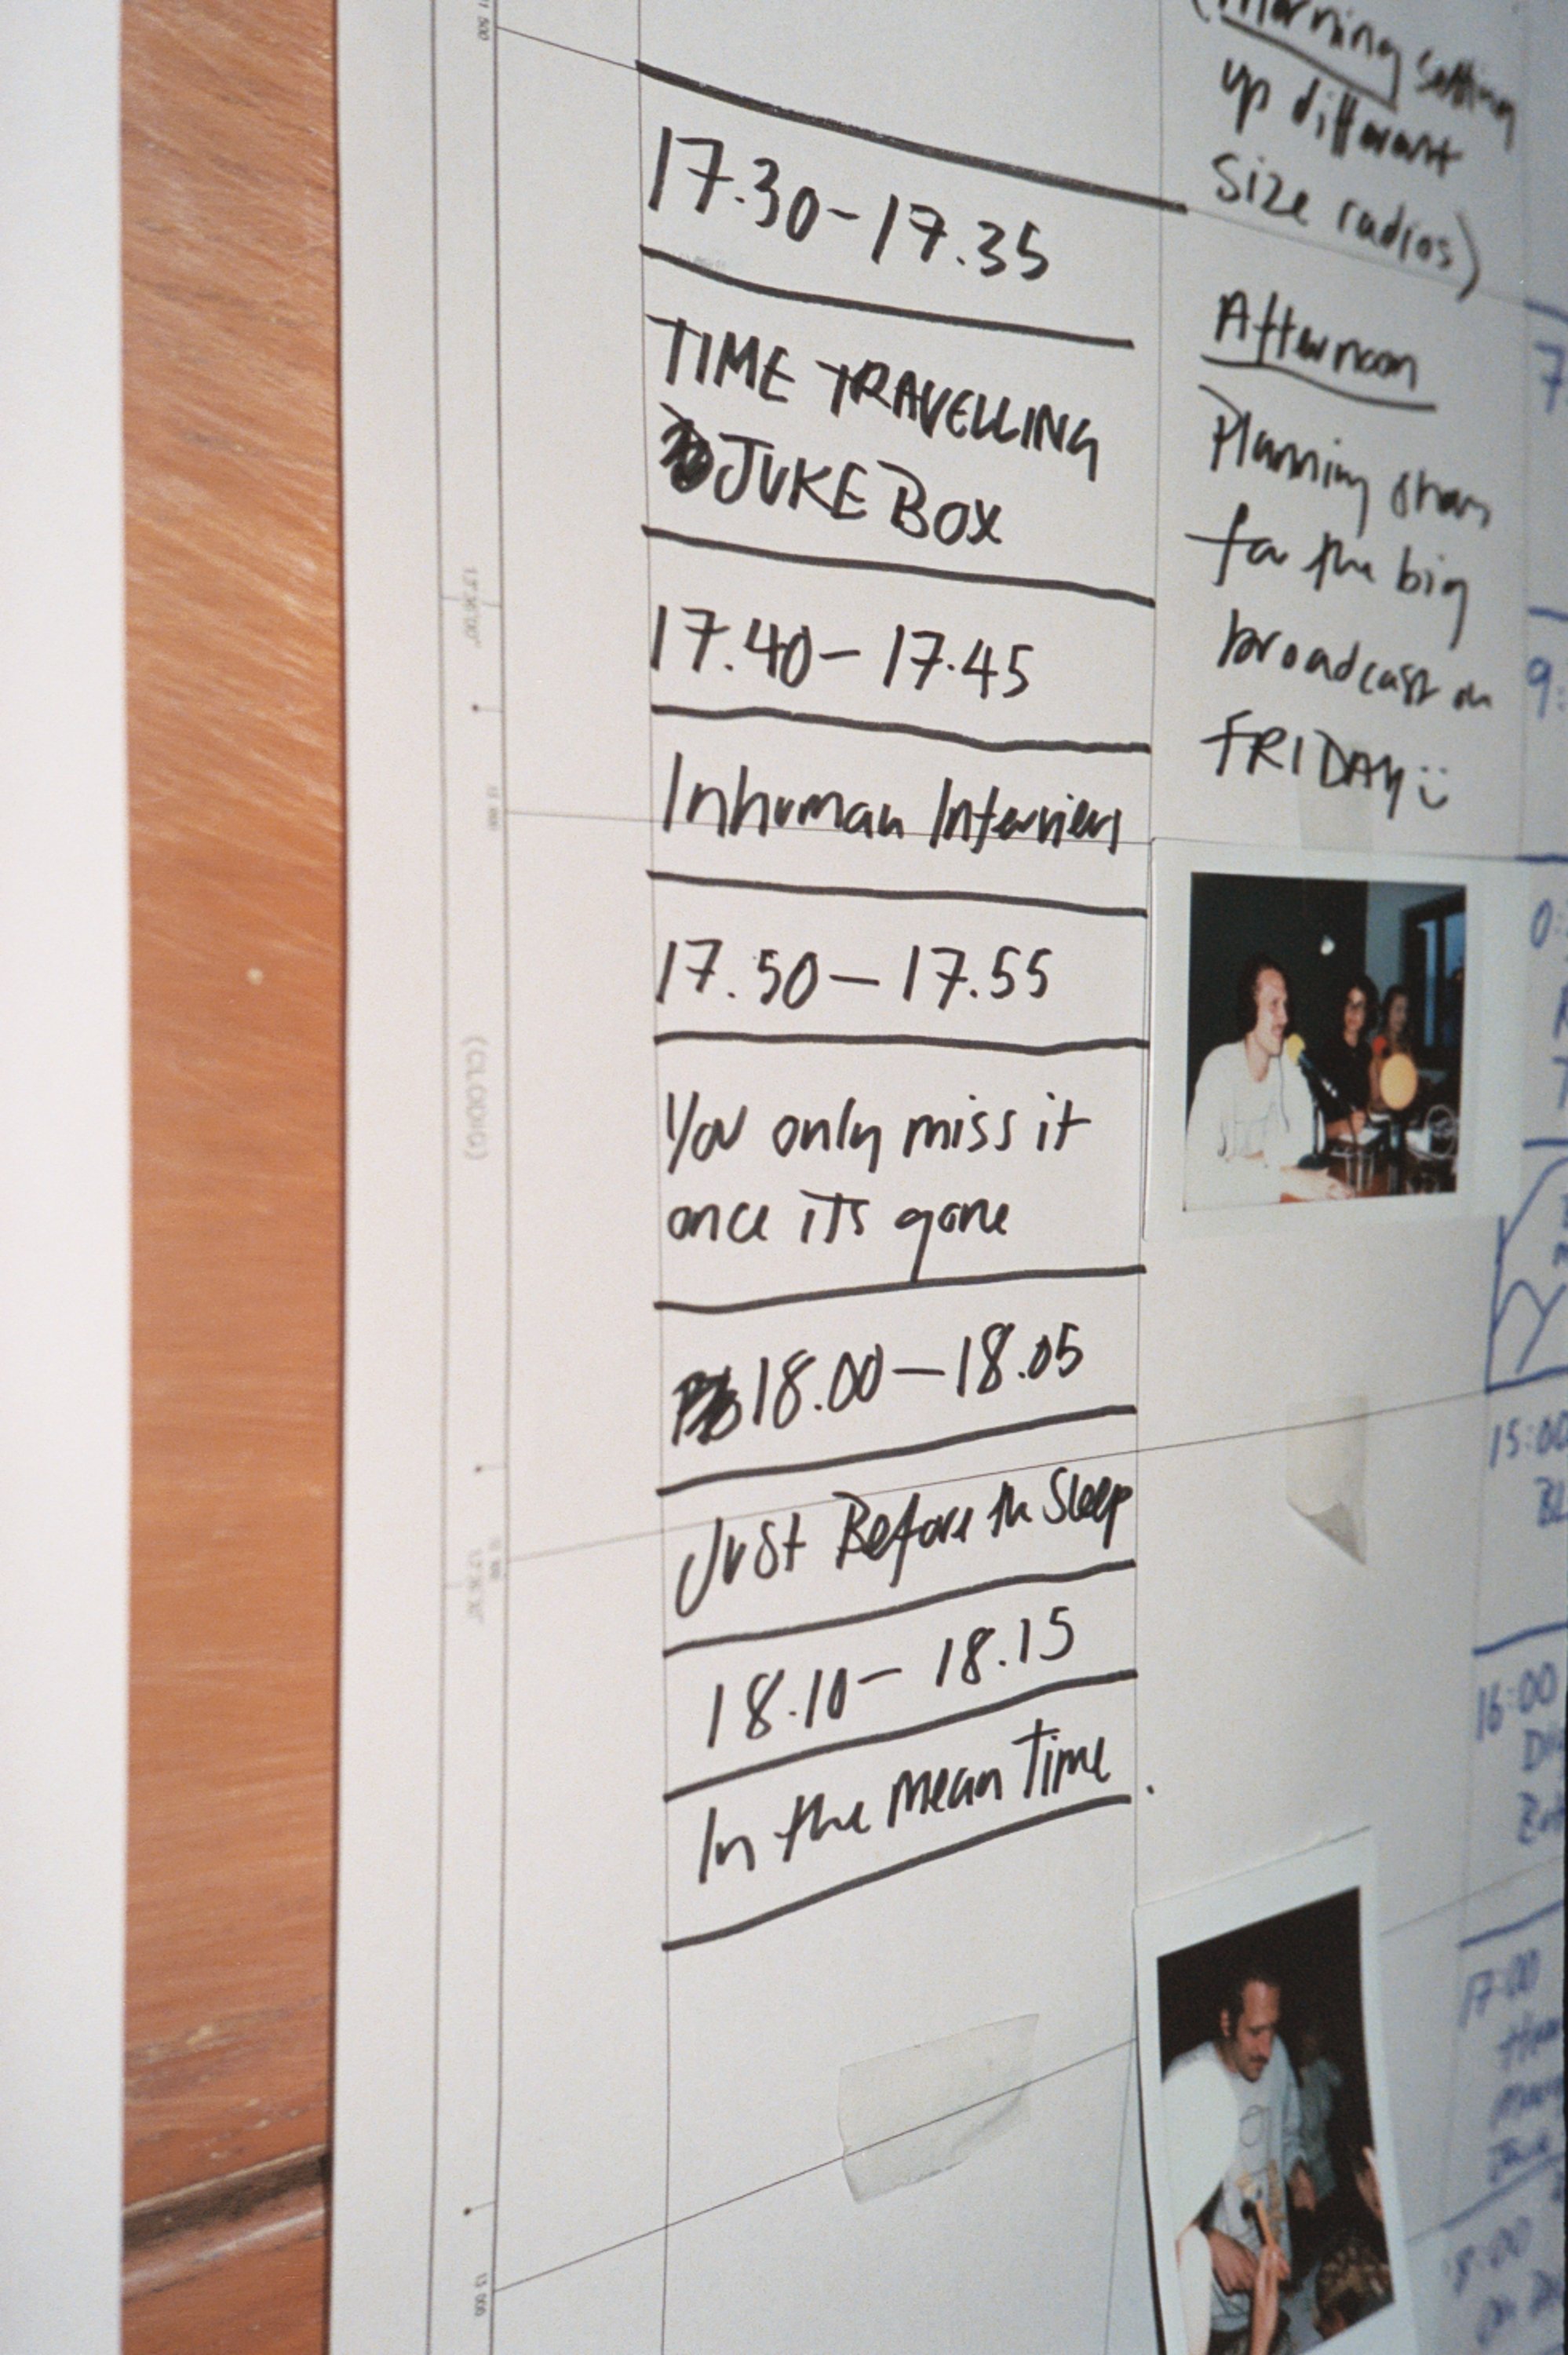 17.30-17.35
TIME TRAVELLING
JUKE BOX
17.40-17.45
Inhuman Interviews
17.50-17.55
You only miss it
once its gone
18.00-18.05
Just Before the Sleep
18.10-18.15
In the Mean Time.
(Morning setting
up different
size radios)
Afternoon
Planning shows
for the big
broadcast on
FRIDAY :)
(CLODIG)
15:00
16:00
17:00